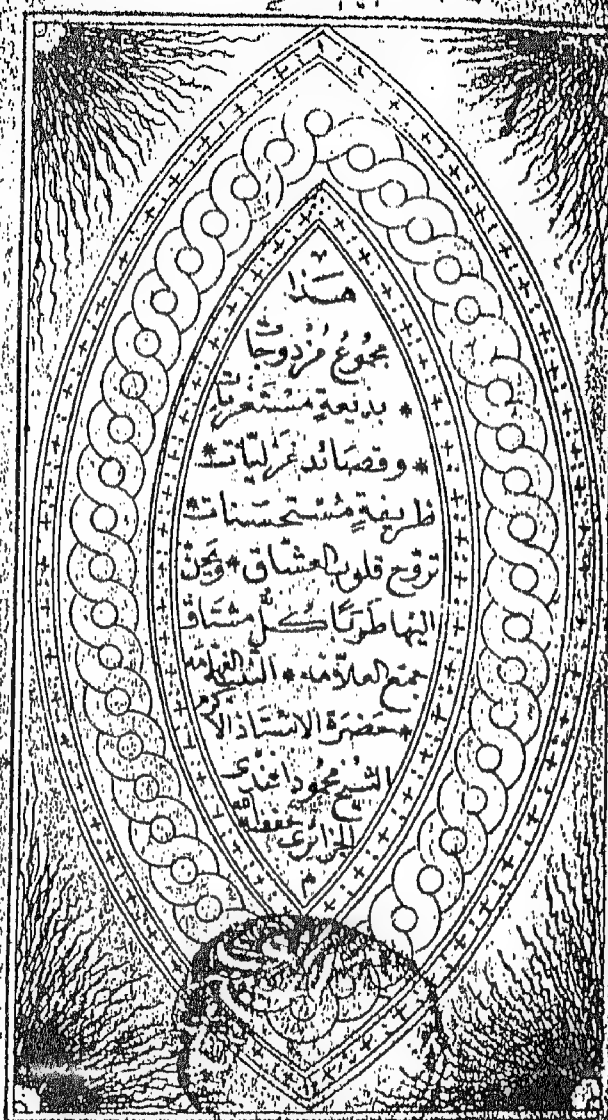 هذا
مجموع مُزدوجات
* بديعةٍ مستغربات
* وقصائد غزليّات *
ظريفةٍ مستحسنات *
تروّح قلوب العشاق * ويحنّ
اليها طَرَبًا كلّ مشتاق
جمع العلّامه * النبيه الفهّامه
* حضرة الاستاذ الاكرم
الشيخ محمود افندى
الجزائرى حفظه الله
م